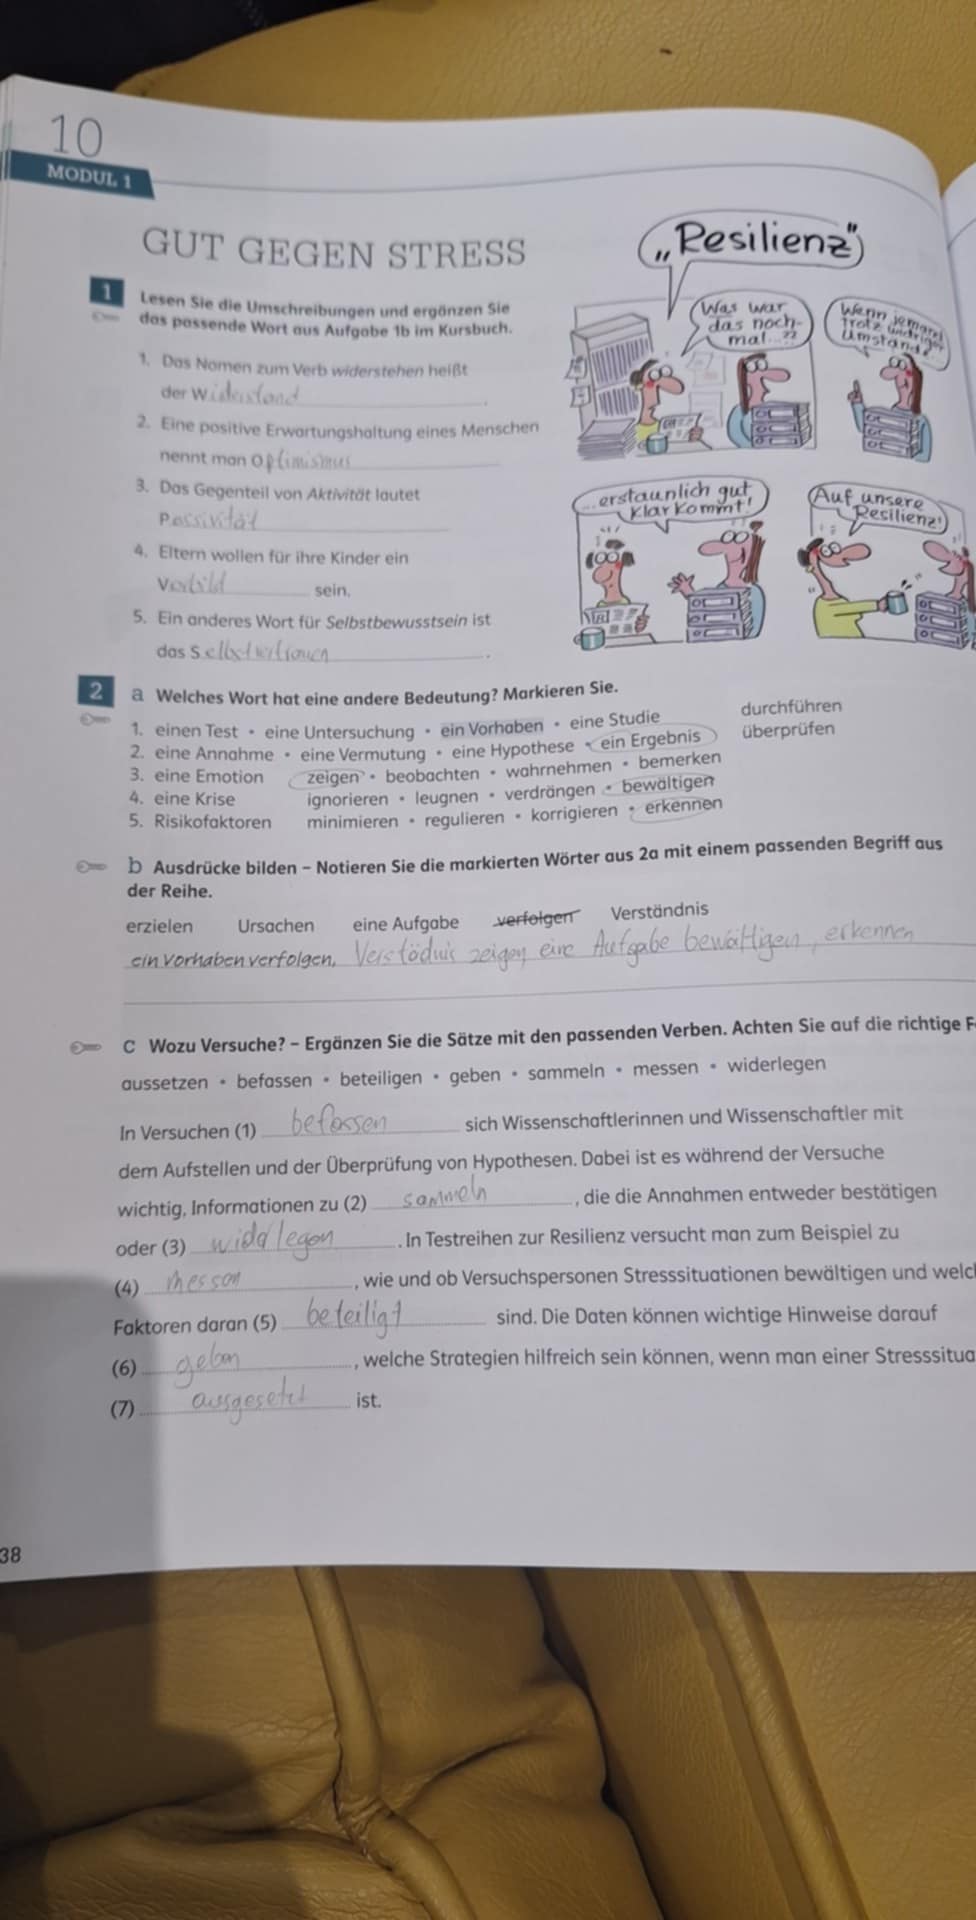 10
MODUL 1
GUT GEGEN STRESS
„Resilienz"
Was war
das noch-
mal...??
Wenn jemand
trotz widriger
Umstände...
...erstaunlich gut
klarkommt!
Auf unsere
Resilienz!
1 Lesen Sie die Umschreibungen und ergänzen Sie
das passende Wort aus Aufgabe 1b im Kursbuch.
1. Das Nomen zum Verb widerstehen heißt
der Widerstand.
2. Eine positive Erwartungshaltung eines Menschen
nennt man Optimismus
3. Das Gegenteil von Aktivität lautet
Passivität
4. Eltern wollen für ihre Kinder ein
Vorbild sein.
5. Ein anderes Wort für Selbstbewusstsein ist
das Selbstvertrauen.
2 a Welches Wort hat eine andere Bedeutung? Markieren Sie.
1. einen Test • eine Untersuchung • ein Vorhaben • eine Studie durchführen
2. eine Annahme • eine Vermutung • eine Hypothese • ein Ergebnis überprüfen
3. eine Emotion zeigen • beobachten • wahrnehmen • bemerken
4. eine Krise ignorieren • leugnen • verdrängen • bewältigen
5. Risikofaktoren minimieren • regulieren • korrigieren • erkennen
b Ausdrücke bilden – Notieren Sie die markierten Wörter aus 2a mit einem passenden Begriff aus
der Reihe.
erzielen Ursachen eine Aufgabe verfolgen Verständnis
ein Vorhaben verfolgen, Verstödnis zeigen eine Aufgabe bewältigen, erkennen
c Wozu Versuche? – Ergänzen Sie die Sätze mit den passenden Verben. Achten Sie auf die richtige F
aussetzen • befassen • beteiligen • geben • sammeln • messen • widerlegen
In Versuchen (1) befassen sich Wissenschaftlerinnen und Wissenschaftler mit
dem Aufstellen und der Überprüfung von Hypothesen. Dabei ist es während der Versuche
wichtig, Informationen zu (2) sammeln, die die Annahmen entweder bestätigen
oder (3) widerlegen. In Testreihen zur Resilienz versucht man zum Beispiel zu
(4) messen, wie und ob Versuchspersonen Stresssituationen bewältigen und welc
Faktoren daran (5) beteiligt sind. Die Daten können wichtige Hinweise darauf
(6) geben, welche Strategien hilfreich sein können, wenn man einer Stresssitua
(7) ausgesetzt ist.
38